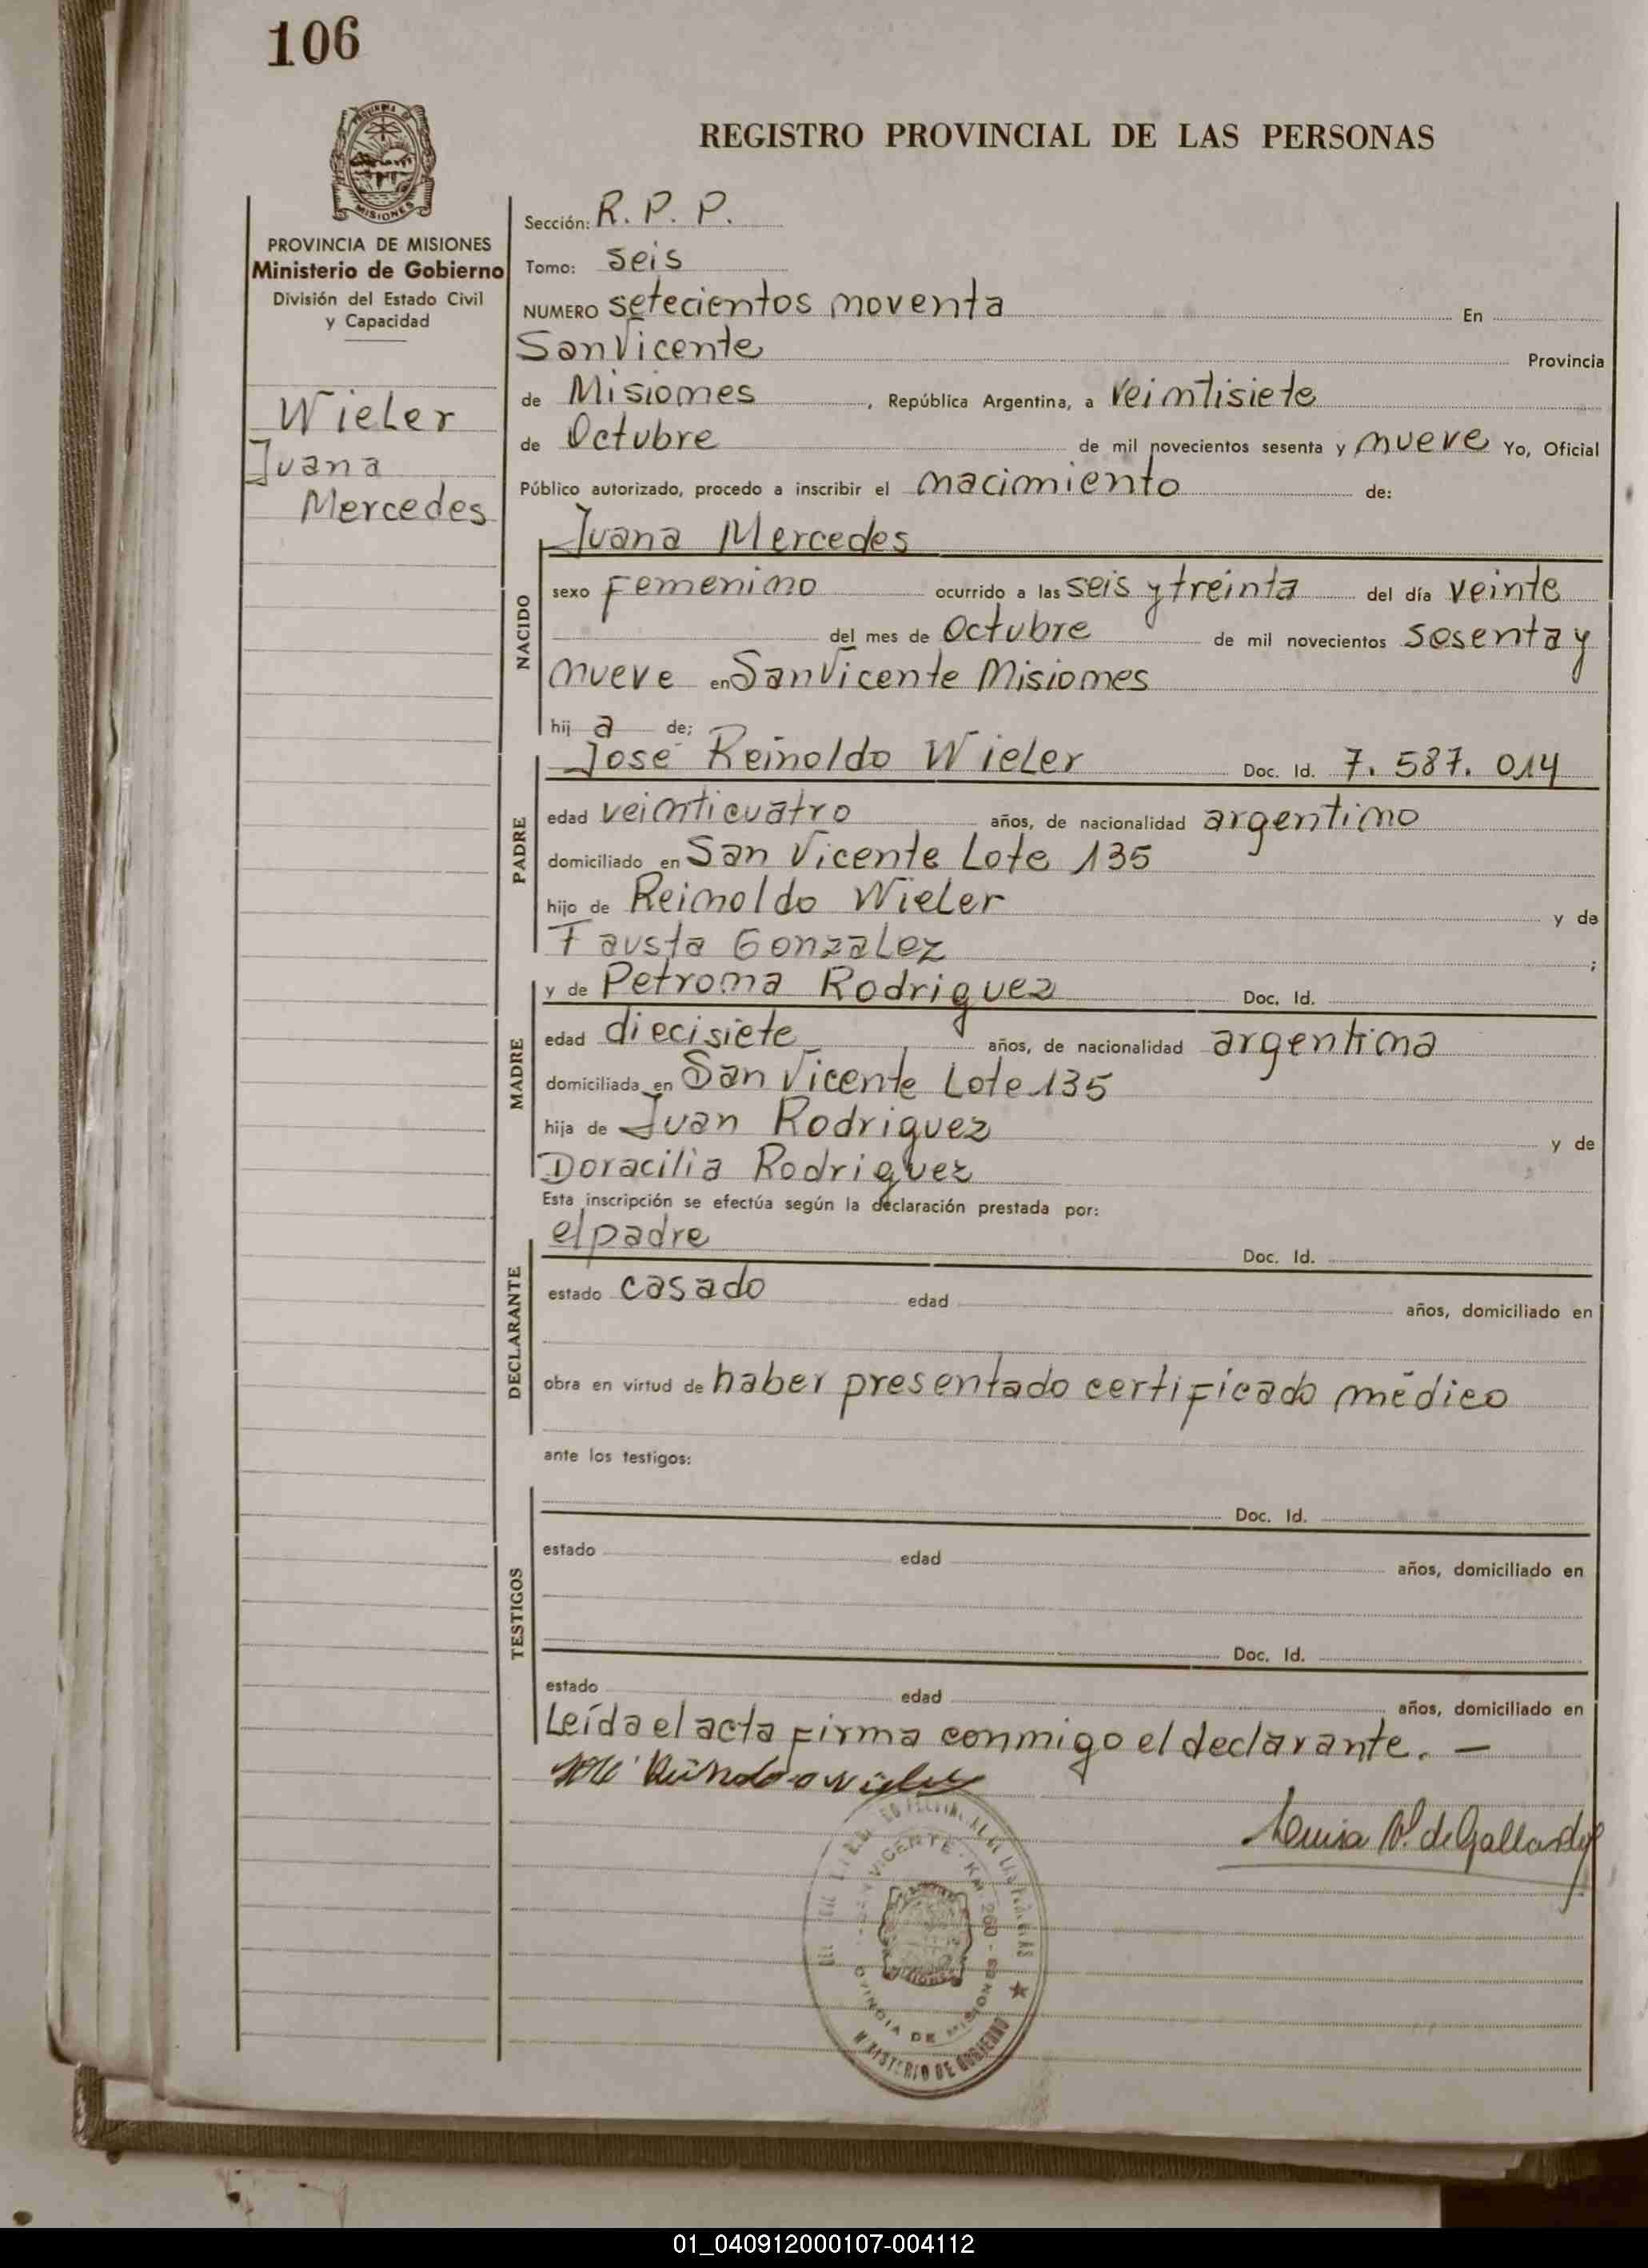 106
REGISTRO PROVINCIAL DE LAS PERSONAS
MISIONES
PROVINCIA DE MISIONES
Ministerio de Gobierno
División del Estado Civil
y Capacidad
Wieler
Juana
Mercedes
Sección: R. P. P.
Tomo: seis
NUMERO setecientos noventa En
San Vicente Provincia
de Misiones, República Argentina, a veintisiete
de Octubre de mil novecientos sesenta y nueve Yo, Oficial
Público autorizado, procedo a inscribir el nacimiento de:
Juana Mercedes
NACIDO
sexo Femenino ocurrido a las seis y treinta del día veinte
del mes de Octubre de mil novecientos sesenta y
nueve en San Vicente Misiones
hij a de;
José Reinoldo Wieler Doc. Id. 7. 587. 014
PADRE
edad veinticuatro años, de nacionalidad argentino
domiciliado en San Vicente Lote 135
hijo de Reinoldo Wieler y de
Fausta Gonzalez ;
y de Petrona Rodriguez Doc. Id.
MADRE
edad diecisiete años, de nacionalidad argentina
domiciliada en San Vicente Lote 135
hija de Juan Rodriguez y de
Doracilia Rodriguez
Esta inscripción se efectúa según la declaración prestada por:
el padre Doc. Id.
DECLARANTE
estado casado edad años, domiciliado en
obra en virtud de haber presentado certificado médico
ante los testigos:
Doc. Id.
TESTIGOS
estado edad años, domiciliado en
Doc. Id.
estado edad años, domiciliado en
Leída el acta firma conmigo el declarante. —
José Reinoldo Wieler
de Gallardo
VICENTE - KM. 260 -
DE MISIONES
MINISTERIO DE GOBIERNO
MISIONES
01_040912000107-004112